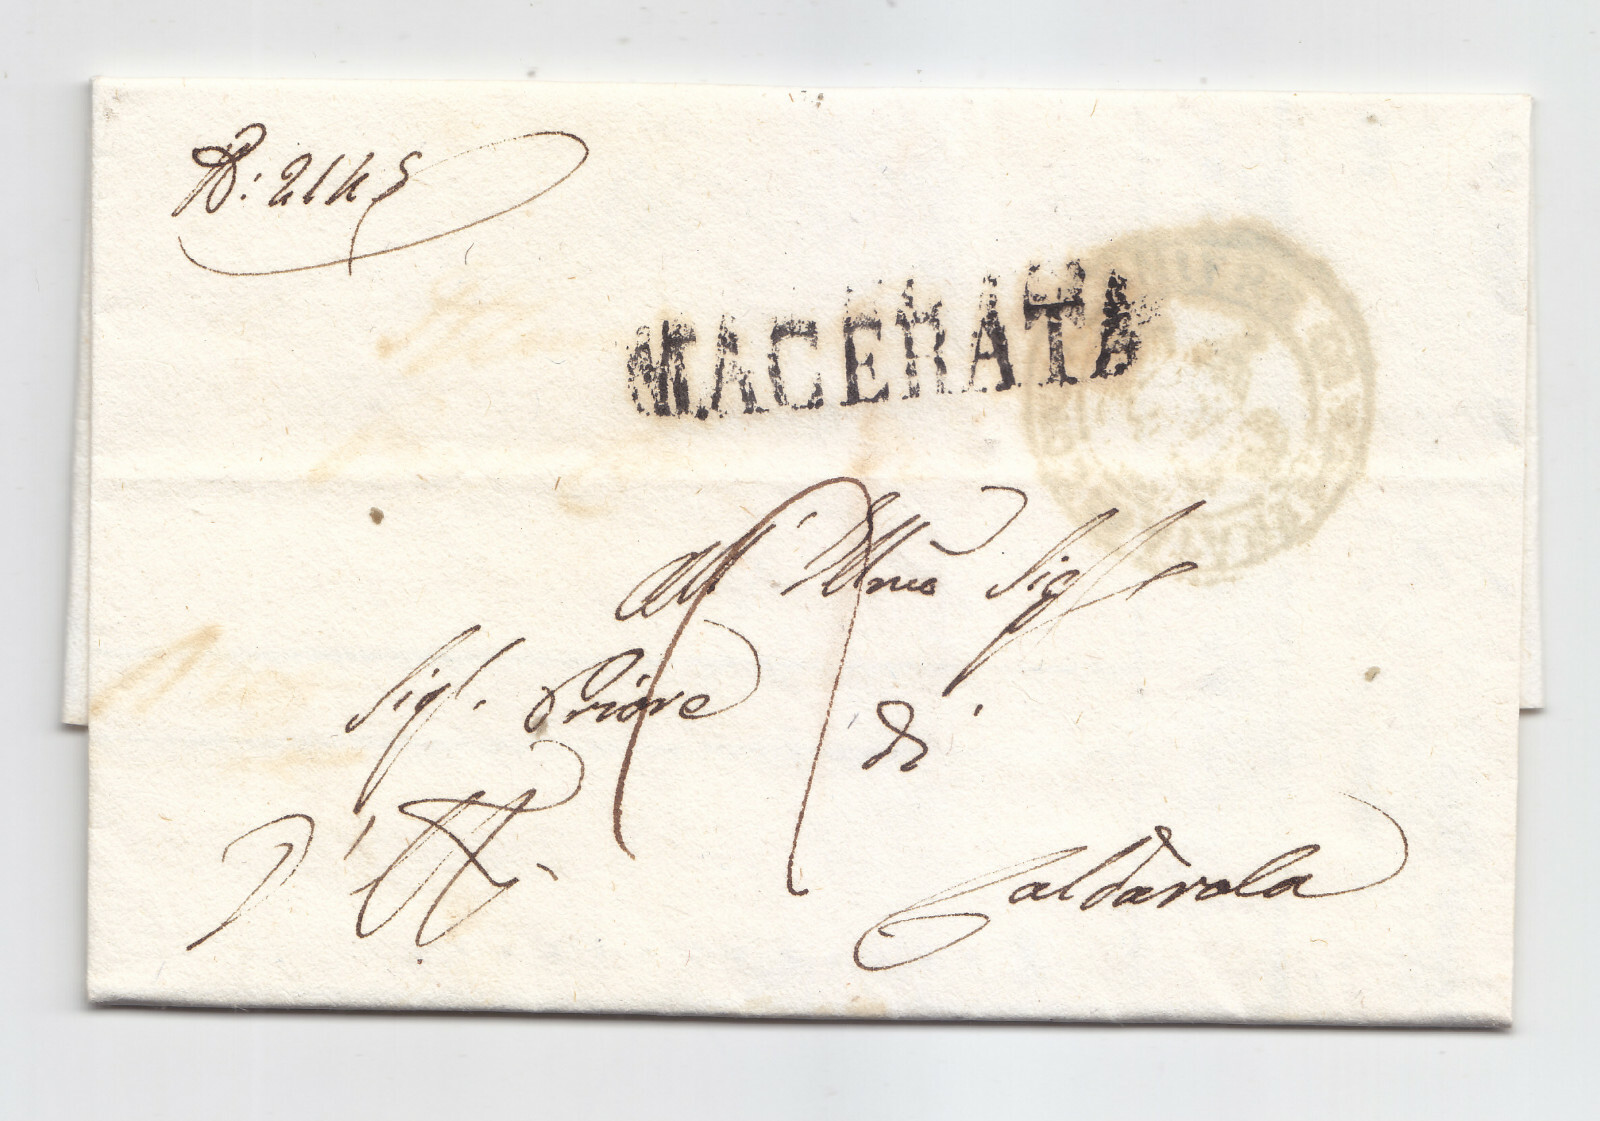 N: 2145
MACERATA
All' Illmo Sig
Sigr. Priore
di
Caldarola